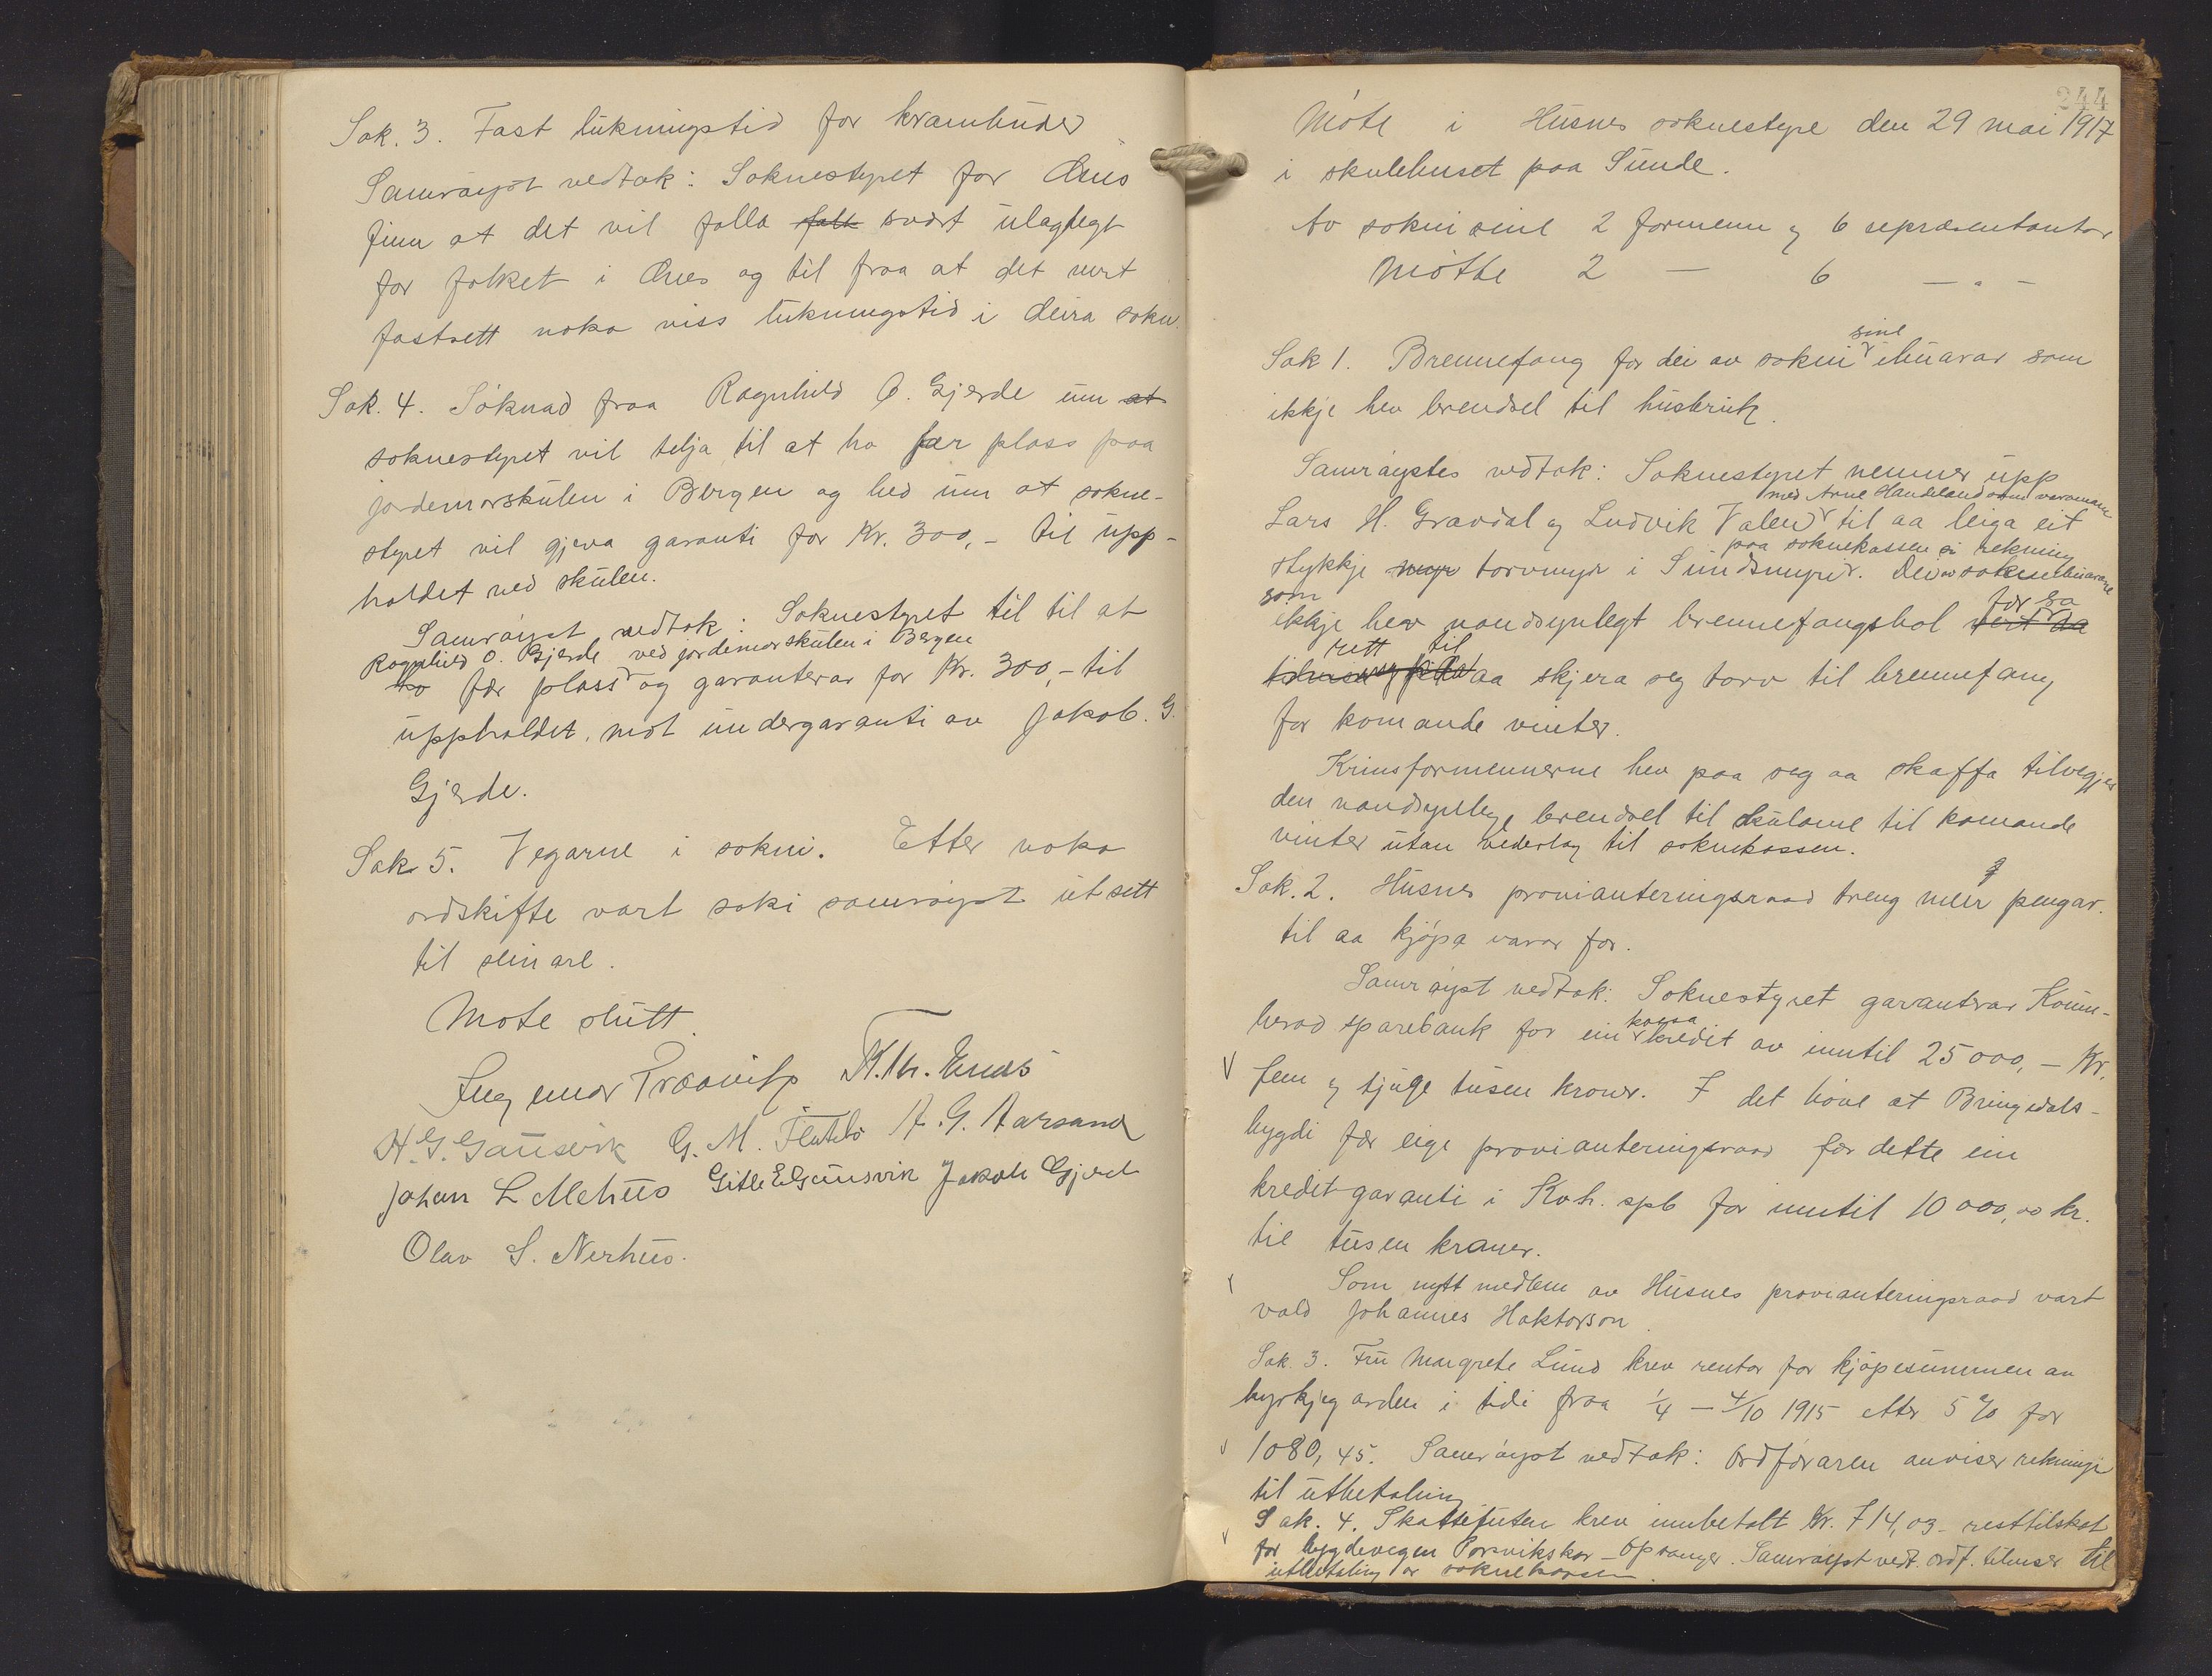 Sak. 3. Fast lukningstid for krambuder
Samrøyst vedtak: Soknestyret for Ænes
finn at det vil falla falt svært ulaglegt
for folket i Ænes og til fraa at det vert
fastsett noko viss lukningstid i deira sokn.
Sak. 4. Søknad fraa Ragnhild O. Gjerde um at
soknestyret vil telja til at ho fær plass paa
jordemorskulen i Bergen og bed um at sokne-
styret vil gjeva garanti for Kr. 300,- til upp-
haldet ved skulen.
Samrøyst vedtak: Soknestyret til til at
Ragnhild O. Gjerde ved jordemorskulen i Bergen
ho fær plass og garanterar for Kr. 300,- til
uppholdet, mot undergaranti av Jakob. G.
Gjerde.
Sak 5. Vegarne i sokni. Etter noko
ordskifte vart saki samrøyst utsett
til seinare.
Møte slutt.
K. Th. Enes
H. G. Gausvik G. M. A. G. Aarsand
Johan L Mehus Gitle E Gausvik Jakob Gjerde
Olav S. Nerhus.
244
Møte i Husnes soknestyre den 29 mai 1917
i skulehuset paa Sunde.
Av sokni sine 2 formenn og 6 representantar
møtte 2 — 6 — " —
Sak 1. Brennefang for dei av sokni sine ibuarar som
ikkje hev brendsel til husbruk.
Samrøystes vedtak: Soknestyret nemner upp
med Arne Handeland som varamann
Lars H. Gravdal og Ludvik Valen til aa leiga eit
paa soknekassen si rekning
stykkje myr torvmyr i Sundsmyri. Dei av sokneibuarane
som
ikkje hev naudsynlegt brennefangshol fær sa vert aa
rett til
aa skjera seg torv til brennefang
for komande vinter.
Krinsformennerne hev paa seg aa skaffa tilvegjes
den naudsynlege brendsel til skulane til komande
vinter utan vederlag til soknekassen.
Sak. 2. Husnes provianteringsraad treng meir pengar.
til aa kjøpa varor for.
Samrøyst vedtak: Soknestyret garanterar Kvinn-
herad sparebank for ein kassakredit av inntil 25000,- Kr.
fem og tjuge tusen kronor. I det høve at Bringedals-
bygdi fær eige provianteringsraad fær dette ein
kreditgaranti i Kvh. spb for inntil 10000,00 kr.
tie tusen kroner.
Som nytt medlem av Husnes provianteringsraad vart
vald Johannes Haktorson.
Sak. 3. Fru Margrete Lund krev rentor for kjøpesummen av
kyrkjegarden i tidi fraa 1/4 — 4/10 1915 etter 5 % for
1080,45. Samrøyst vedtak: Ordføraren anviser rekningi
til utbetaling
Sak. 4. Skattefuten krev innbetalt Kr. 714,03 - resttilskot
for bygdevegen Porsvikskar - Opsanger. Samrøyst vedt. ordf. tilviser til
utbetaling av soknekassen.